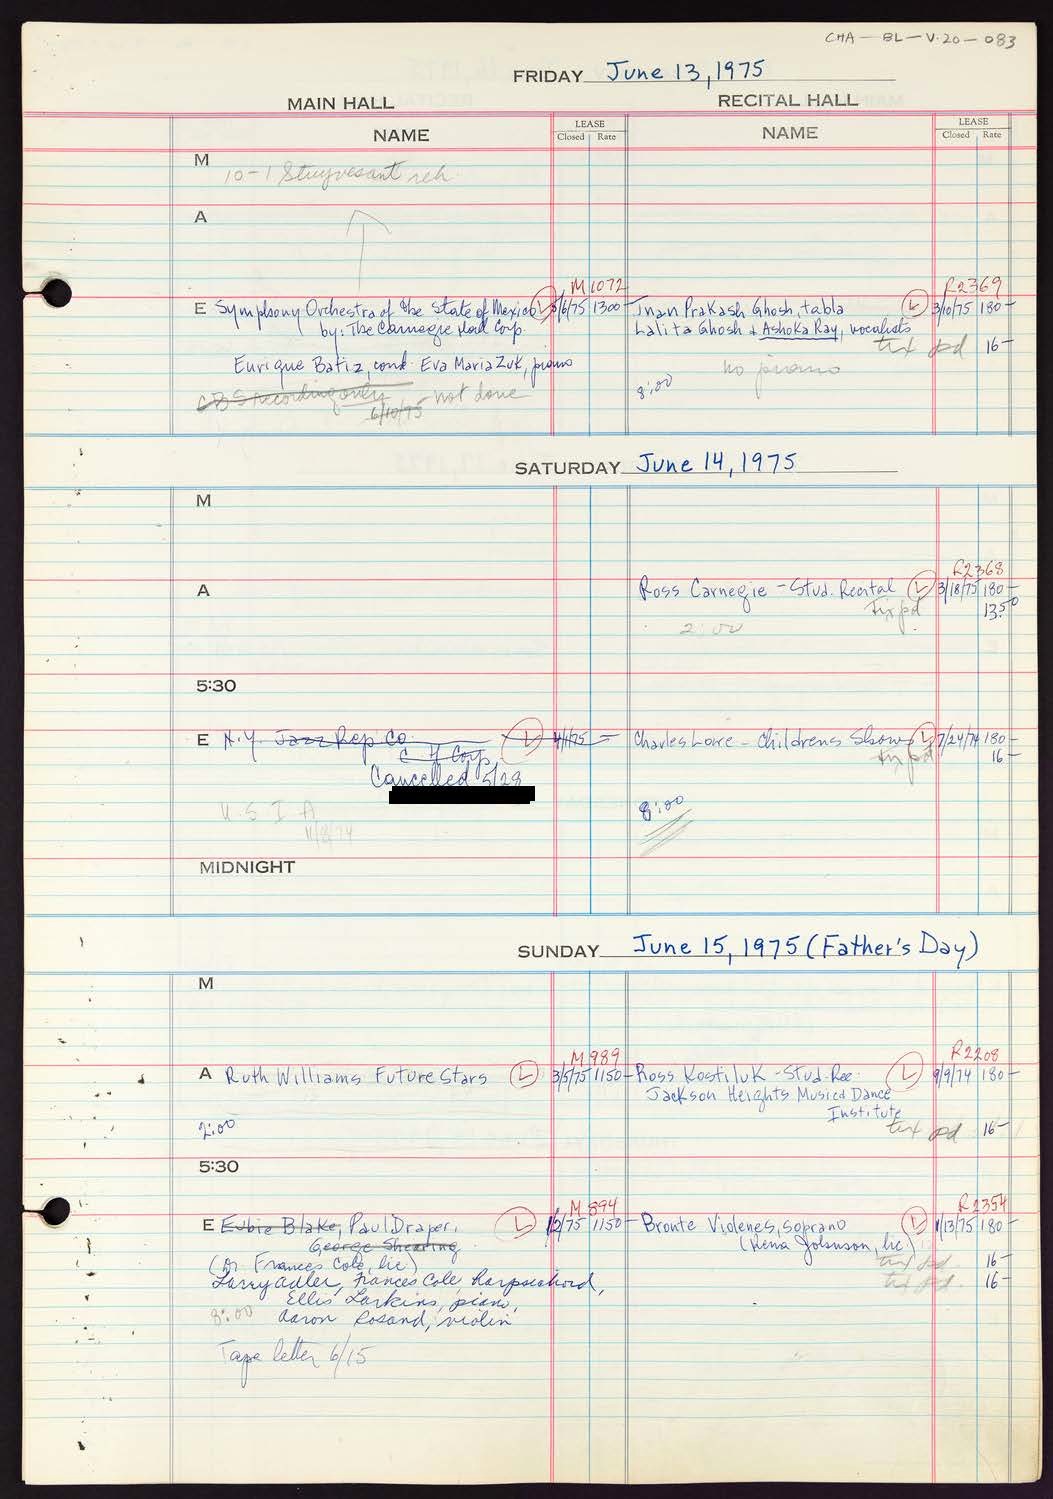 CMA - BL - V.20 - 083
FRIDAY June 13, 1975
MAIN HALL
RECITAL HALL
NAME
LEASE
Closed Rate
NAME
LEASE
Closed Rate
M 10-1 Stuyvesant reh.
A
M1072
R2369
E Symphony Orchestra of the State of Mexico L 5/6/75 1300-
by: The Carnegie Hall Corp.
Enrique Batiz, cond. Eva Maria Zuk, piano
CBS recording only 6/10/75 - not done
Jnan Prakash Ghosh, tabla L 3/10/75 180-
Lalita Ghosh & Ashoka Ray, vocalists
tix pd 16-
no piano
8:00
SATURDAY June 14, 1975
M
R2368
A
Ross Carnegie - Stud. Recital L 3/18/75 180-
tix pd 13.50
2:00
5:30
E N.Y. Jazz Rep Co. L 4/1/75 -
C H Corp.
Cancelled 5/28
U.S.I.A
11/8/74
Charles Lowe - Childrens Show L 7/24/74 180-
tix pd 16-
8:00
MIDNIGHT
SUNDAY June 15, 1975 (Father's Day)
M
M989
R2208
A Ruth Williams Future Stars L 3/5/75 1150-
2:00
Ross Kostiluk - Stud. Rec. L 9/9/74 180-
Jackson Heights Music & Dance
Institute
tix pd 16-
5:30
M894
R2354
E Eubie Blake, Paul Draper, L 1/2/75 1150-
George Shearing
(Dr Frances Cole, lic)
Larry Adler, Frances Cole harpsichord,
Ellis Larkins, piano,
8:00 Aaron Rosand, violin
Tape letter 6/15
Bronte Violenes, soprano L 1/13/75 180-
(Rena Johnson, lic)
tix pd. 16-
tix pd. 16-